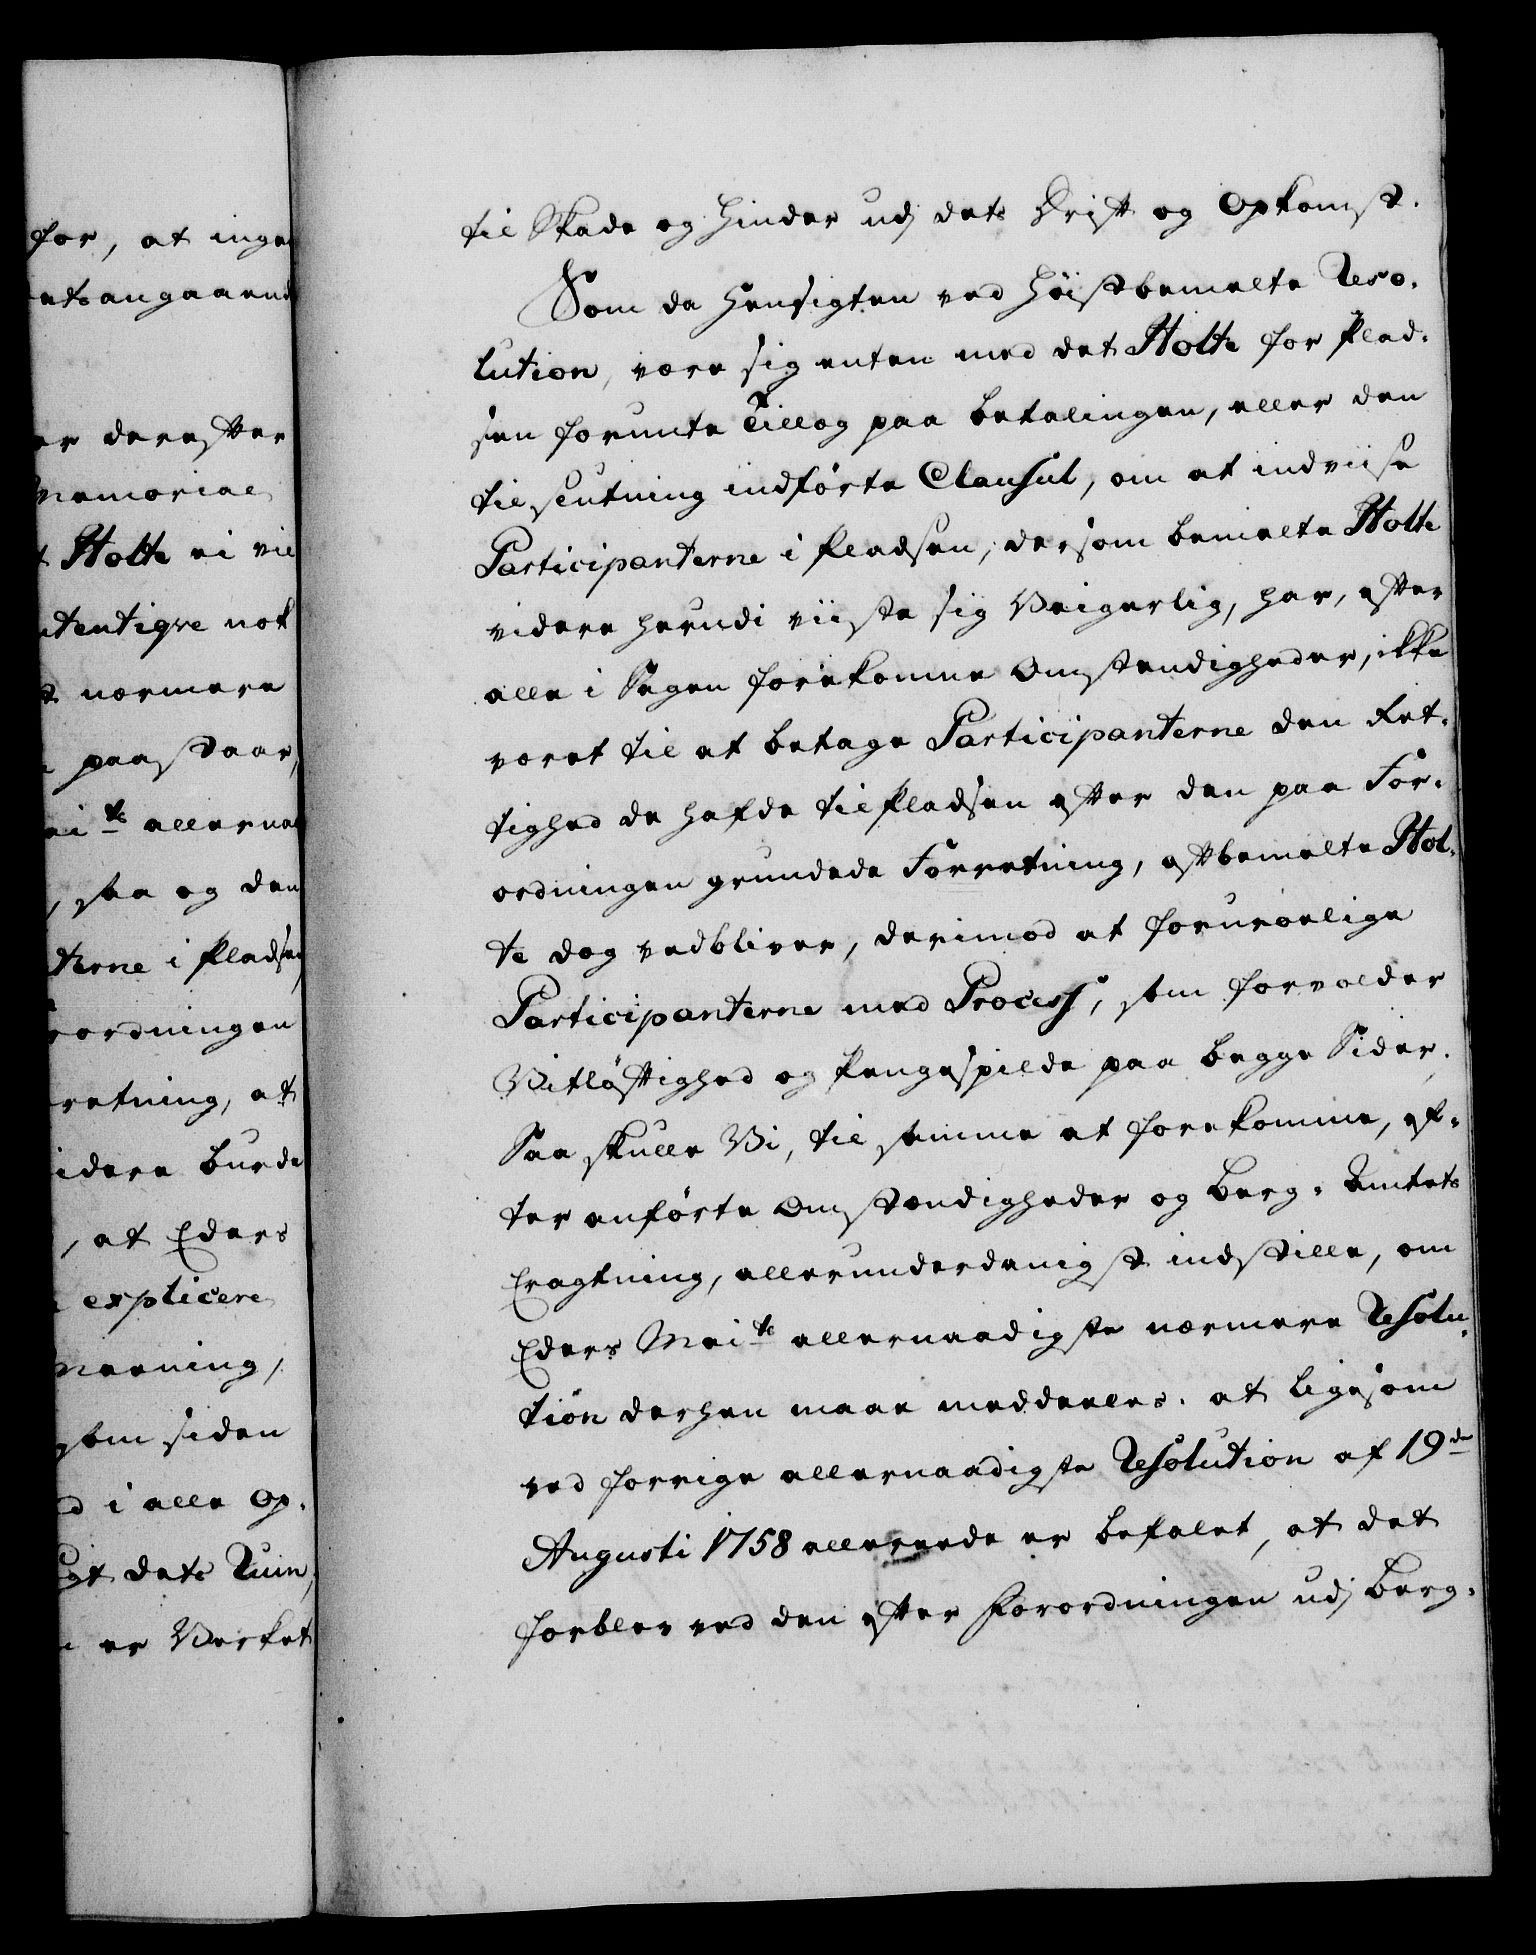 for, at inge
ets angaaend
er derefter
Memorial
t Holte ei vil
utentiqve nok
t nærmere
paastaar,
ei ts allernaa
, saa og den
terne i Pladsen
rordningen
retning, at
idere burde
, at Eders
explicere
meening,
som siden
d i alle Op-
gt dets Ruin,
er Verket
til Skade og Hinder udj dets Drift og Opkomst.
Som da Hensigten ved høistbemelte Reso-
lution, være sig enten med det Holte for Plad-
sen forundte Tillæg paa betalingen, eller den
til slutning indførte Clausul, om at indviise
Participanterne i Pladsen, dersom bemelte Holte
videre herudi viiste sig Veigerlig, har, efter
alle i Sagen forekomne Omstændigheder, ikke
været til at betage Participanterne den Ret-
tighed de hafde til Pladsen efter den paa For-
ordningen grundede Forretning, oftbemelte Hol-
te dog vedbliver, derimod at foruroelige
Participanterne med Process, som forvolder
Vitløftighed og Pengespilde paa begge Sider,
Saa skulle Vi, til samme at forekomme, ef-
ter anførte Omstændigheder og Berg-Amtets
Eragtning, allerunderdanigst indstille, om
Eders Mai ts allernaadigste nærmere Resolu-
tion derhen maae meddeeles. at ligesom
ved forrige allernaadigste Resolution af 19de
Augusti 1758 allereede er befalet, at det
forblev ved den efter Forordningen udj Berg-